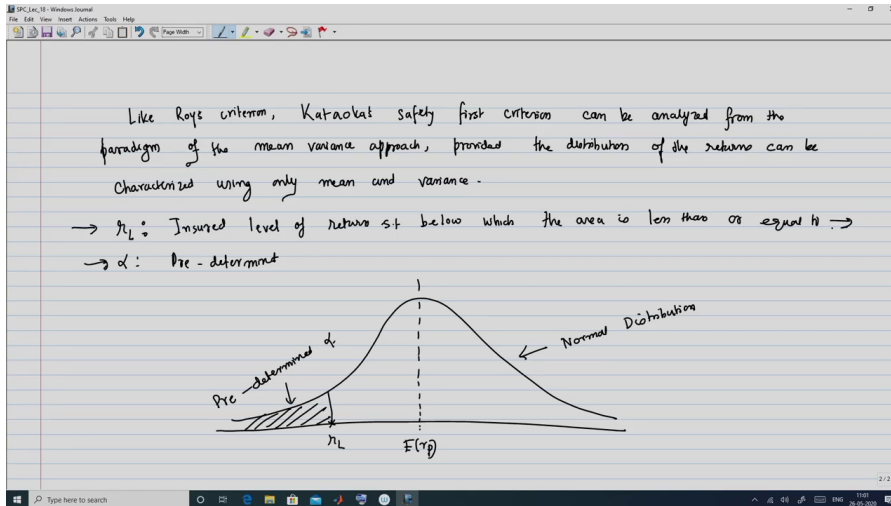 SPC_Lec_18 - Windows Journal
File Edit View Insert Actions Tools Help
Page Width
Like Roys criterion, Kataokas safety first criterion can be analyzed from the
paradigm of the mean variance approach, provided the distribution of the returns can be
characterized using only mean and variance.
→ r_L : Insured level of return s.t below which the area is less than or equal to →
→ α : Pre-determind
Pre-determined α
Normal Distribution
r_L
E(r_p)
2/2
Type here to search
ENG
11:01
26-05-2020